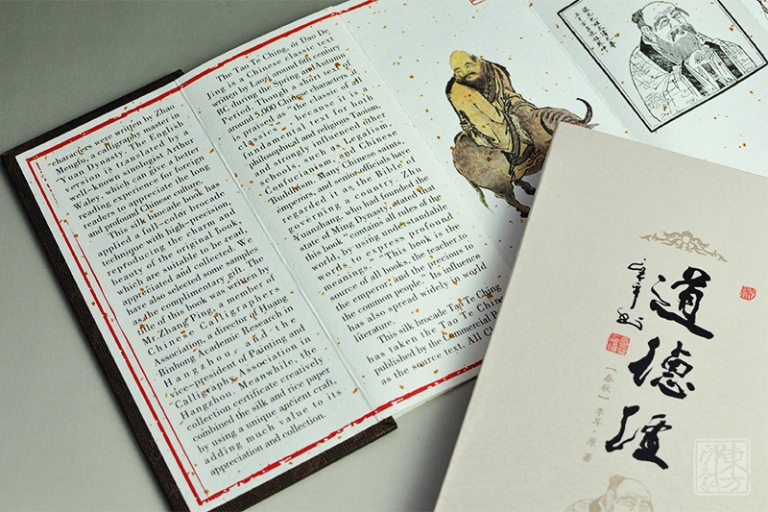 The Tao Te Ching, or Dao De
Jing is a Chinese classic text
written by Laozi around 6th century
BC during the Spring and Autumn
Period. Though a short text of
around 5,000 Chinese characters, it
is praised as "the classic of all
classics", because it is a
fundamental text for both
philosophical and religious Taoism,
and strongly influenced other
schools, such as Legalism,
Confucianism, and Chinese
Buddhism. Many Chinese saints,
emperors, and senior officials have
regarded it as the Bible of
governing a country. Zhu
Yuanzhang, who had founded the
state of Ming Dynasty, stated that
this book "contains all rules of the
world, by using understandable
words to express profound
meanings." "This book is the
source of all books, the teacher to
the emperor, and the precious to
the common people." Its influence
has also spread widely in world
literature.
This silk brocade Tao Te Ching
has taken the Tao Te Chin
published by the Commercial P
as the source text. All Ch
characters were written by Zhao
Mengfu, a calligraphy master in
Yuan Dynasty. The English
version is translated by a
well-known sinologist Arthur
Waley, which can give a better
reading experience for foreign
readers to appreciate the long
and profound Chinese culture.
This silk brocade book has
applied a full-color brocade
technique with high-precision,
reproducing the charm and
beauty of the original book,
which are suitable to be read,
appreciated and collected. We
have also selected some samples
as the complimentary gift. The
title of this book was written by
Mr. Zhang Ying, a member of
Chinese Calligraphers
Association, a director of Huang
Binhong Academic Research in
Hangzhou, and the
vice-president of Painting and
Calligraphy Association in
Hangzhou. Meanwhile, the
collection certificate creatively
combined the silk and rice paper
by using a unique ancient craft,
adding much value to its
appreciation and collection.
道德經
[春秋] 李耳·原 著
東方